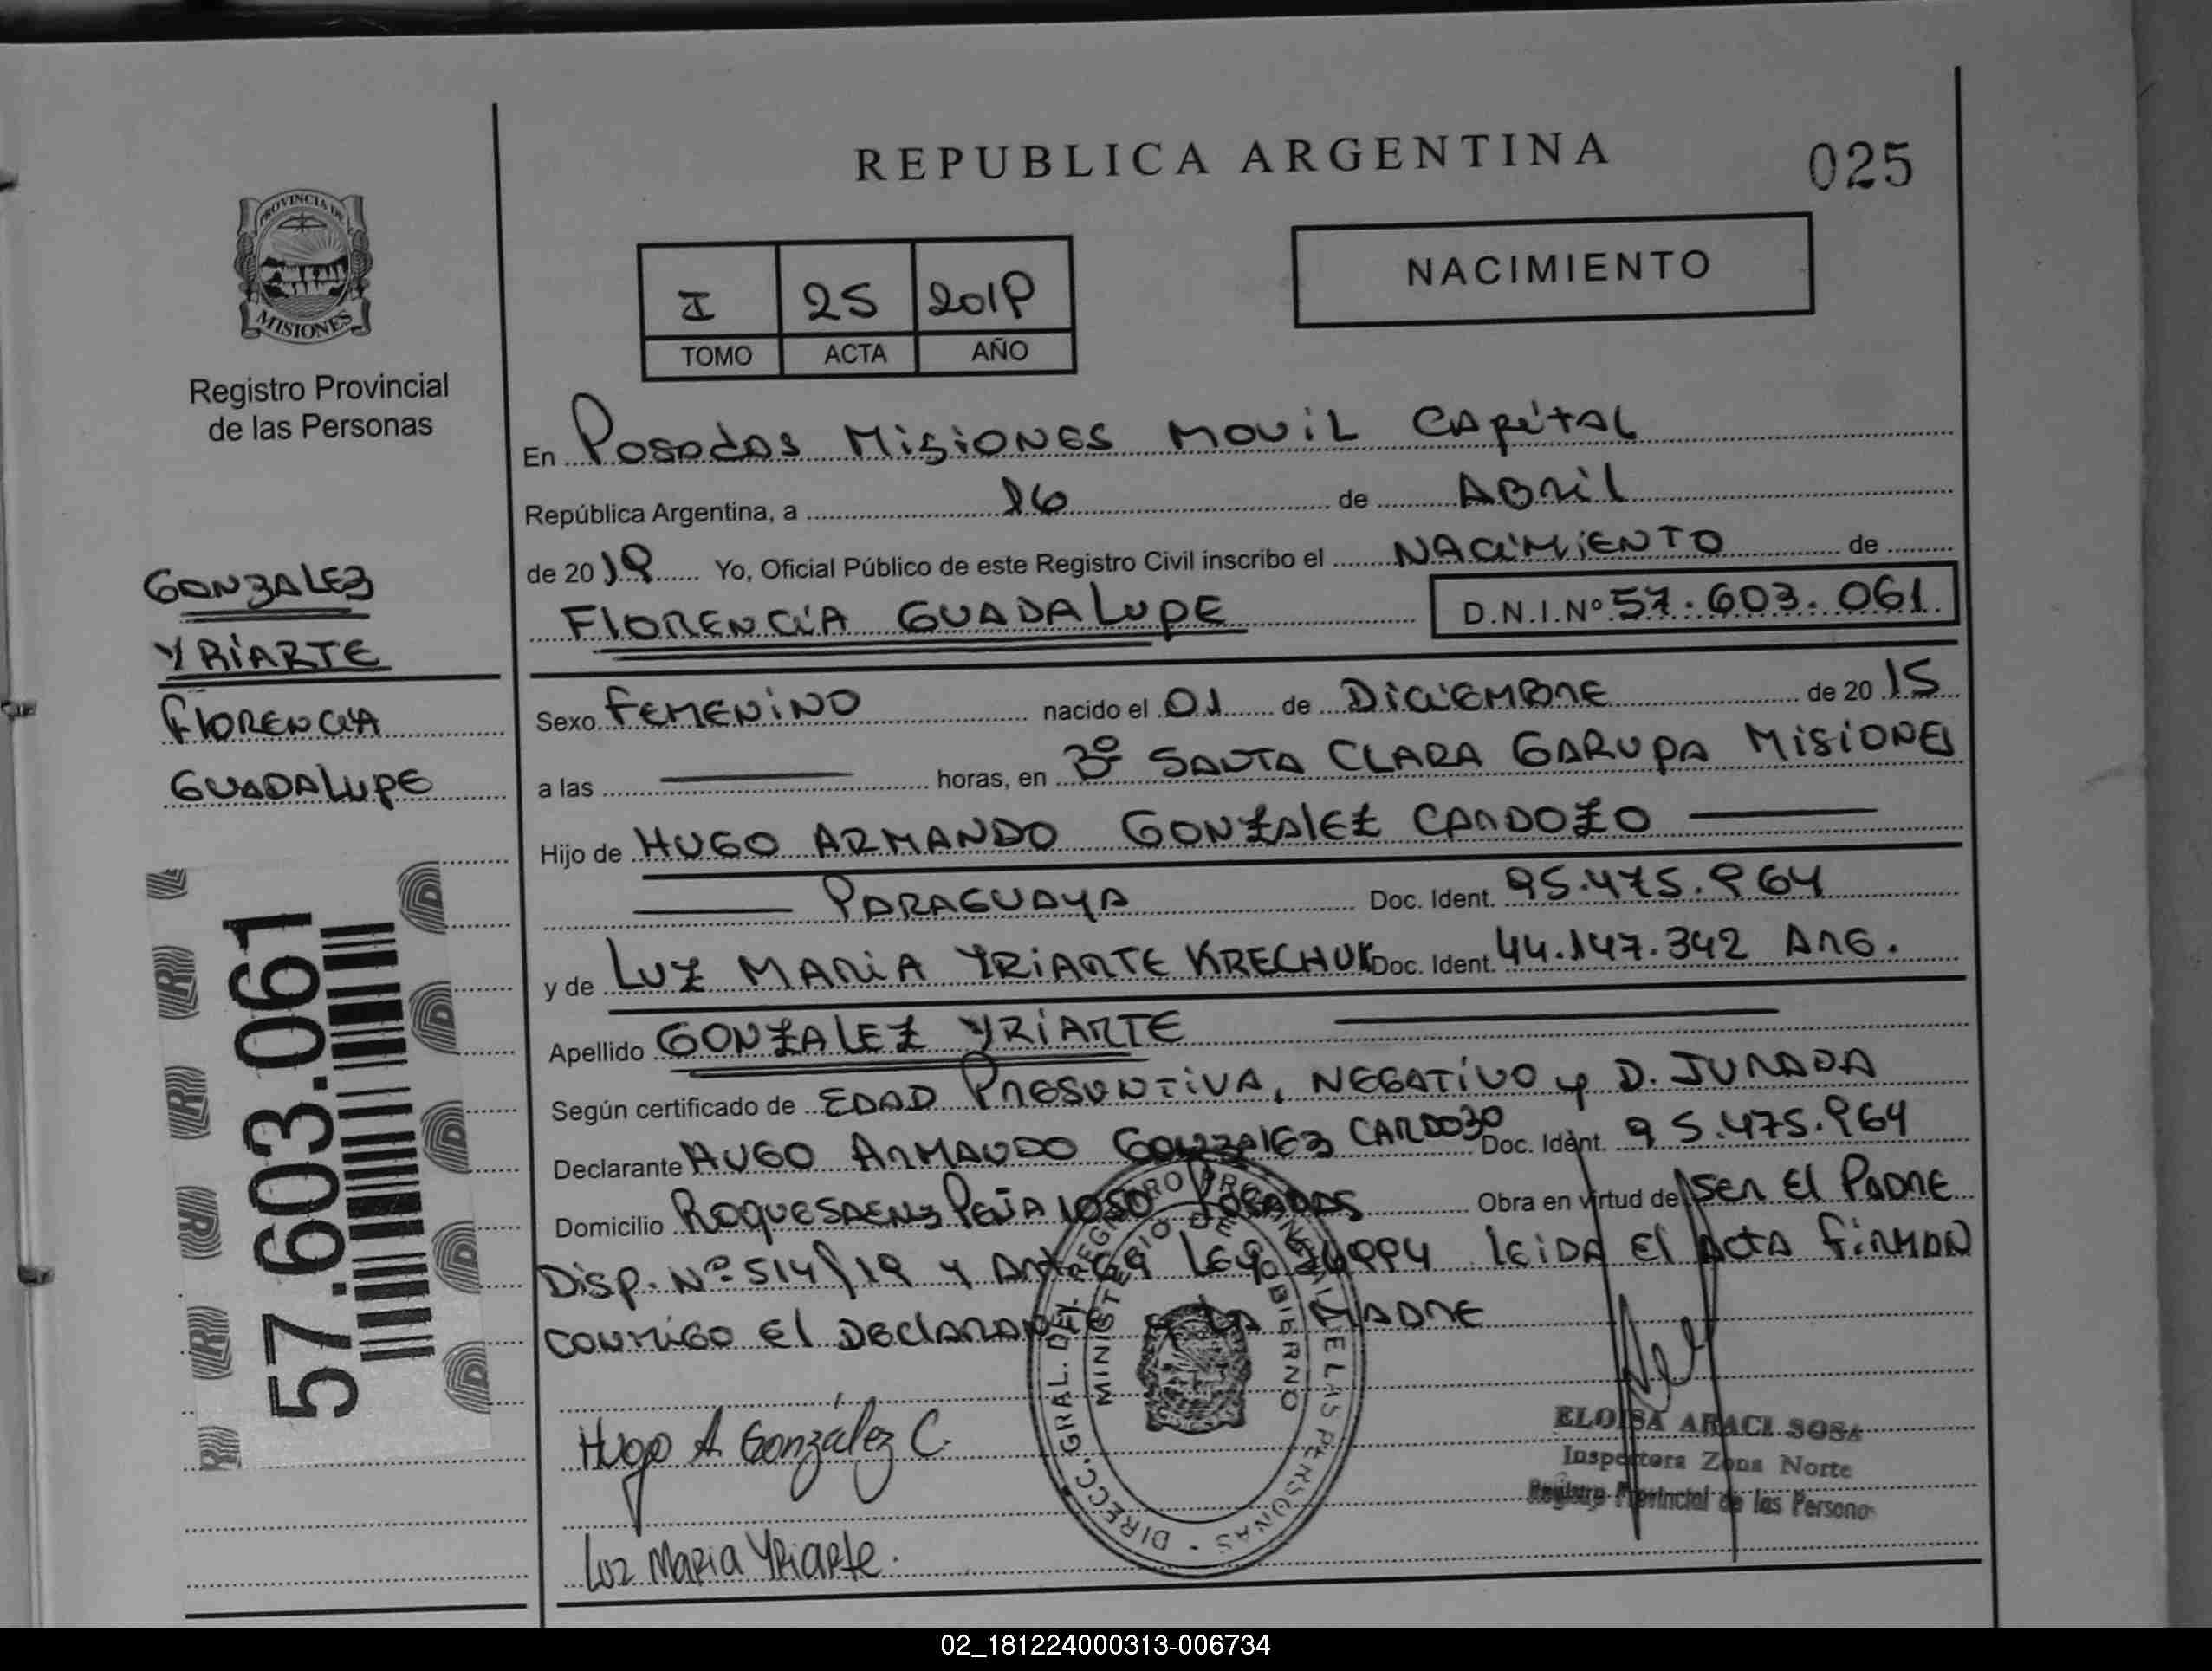 REPUBLICA ARGENTINA
025
PROVINCIA DE
MISIONES
Registro Provincial
de las Personas
I 25 2019
TOMO ACTA AÑO
NACIMIENTO
En Posadas Misiones Movil Capital
República Argentina, a 16 de Abril
de 2019 Yo, Oficial Público de este Registro Civil inscribo el NACIMIENTO de
FLORENCIA GUADALUPE D.N.I.Nº 57.603.061
GONZALEZ
YRIARTE
FLORENCIA
GUADALUPE
Sexo FEMENINO nacido el 01 de DICIEMBRE de 2015
a las horas, en Bº SANTA CLARA GARUPA MISIONES
Hijo de HUGO ARMANDO GONZALEZ CARDOZO
PARAGUAYA Doc. Ident. 95.475.964
y de LUZ MARIA YRIARTE KRECHUK Doc. Ident. 44.147.342 ARG.
Apellido GONZALEZ YRIARTE
Según certificado de EDAD PRESUNTIVA, NEGATIVO y D. JURADA
Declarante HUGO ARMANDO GONZALEZ CARDOZO Doc. Ident. 95.475.964
Domicilio ROQUE SAENZ PEÑA 1050 POSADAS Obra en virtud de SER El PADRE
DISP. Nº 514/19 y Art. Ley leida El Acta firman
conmigo El DECLARANTE y la MADRE
57.603.061
Hugo A. González C.
Luz Maria Yriarte.
DIRECC. GRAL. DEL REGISTRO PROVINCIAL DE LAS PERSONAS
MINISTERIO DE GOBIERNO
ELOISA ARACI SOSA
Inspectora Zona Norte
Registro Provincial de las Personas
02_181224000313-006734